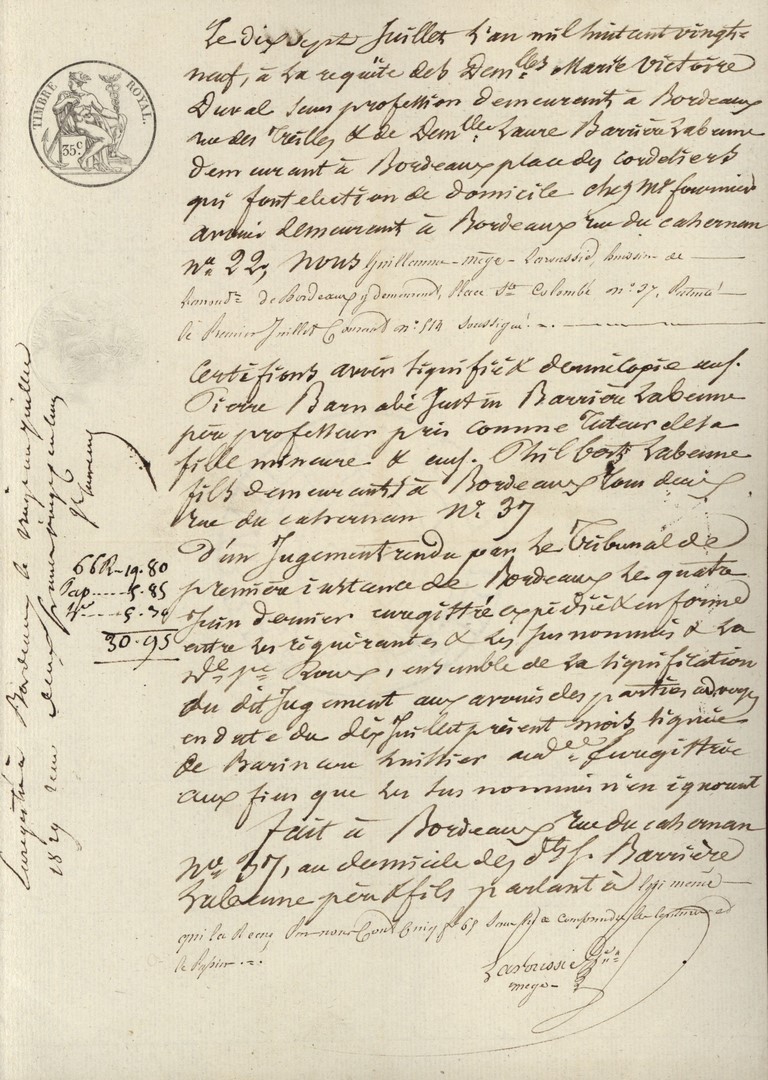 TIMBRE ROYAL.
35c
Le dix sept Juillet L'an mil huitcent vingt-
neuf, à La requête des Demlles Marie Victoire
Duval sans profession demeurant à Bordeaux
rue des Treilles & de Demlle Laure Barrière Labenne
demeurant à Bordeaux place des Cordeliers
qui font election de domicile chez Me fournier
avoué demeurant à Bordeaux rue du cahernan
no 22, nous Guillaume-mège-Laroussie, huissier de
de Bordeaux y demeurant, Place Ste Colombe no 27, Patenté
le Premier Juillet Courant no 514 soussigné
Certifions avoir signifié & donné copie aus.
Pierre Barnabé Justin Barrière Labenne
père professeur pris comme tuteur de sa
fille mineure & aus. Philbert Labenne
fils demeurants à Bordeaux tous deux
rue du cahernan no. 37
D'un Jugement rendu par Le Tribunal de
première instance de Bordeaux Le quatre
Juin dernier enregistré expédié & en forme
entre Les requérantes & Les susnommés & La
Roux, ensemble de La signification
du dit Jugement aux avoués des parties adverses
en date du dix Juillet présent mois signée
de Barincou huissier Enregistrée
aux fins que Les sus nommés n'en ignorent
fait à Bordeaux rue du cahernan
No. 37, au domicile des dts s. Barrière
Labenne père & fils parlant à
qui la Reçu, Cout Cinq f. 65
le Papier
Laroussie
mege
Enregistré à Bordeaux le vingt un juillet
1829 reçu deux francs vingt centimes
66R - 19.80
Pap ---- 5.85
30.95